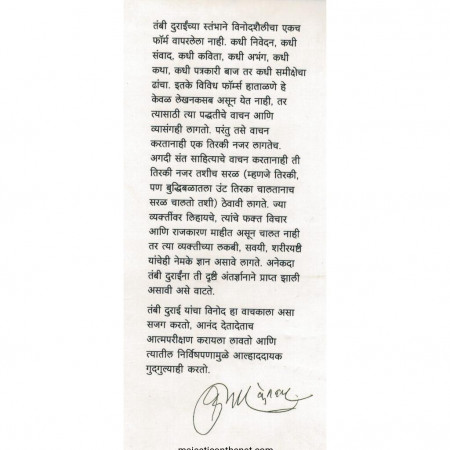 तंबी दुराईंच्या स्तंभाने विनोदशैलीचा एकच
फॉर्म वापरलेला नाही. कधी निवेदन, कधी
संवाद, कधी कविता, कधी अभंग, कधी
कथा, कधी पत्रकारी बाज तर कधी समीक्षेचा
ढांचा. इतके विविध फॉर्म्स हाताळणे हे
केवळ लेखनकसब असून येत नाही, तर
त्यासाठी त्या पद्धतीचे वाचन आणि
व्यासंगही लागतो. परंतु तसे वाचन
करतानाही एक तिरकी नजर लागतेच.
अगदी संत साहित्याचे वाचन करतानाही ती
तिरकी नजर तशीच सरळ (म्हणजे तिरकी,
पण बुद्धिबळातला उंट तिरका चालतानाच
सरळ चालतो तशी) ठेवावी लागते. ज्या
व्यक्तींवर लिहायचे, त्यांचे फक्त विचार
आणि राजकारण माहीत असून चालत नाही
तर त्या व्यक्तीच्या लकबी, सवयी, शरीरयष्टी
यांचेही नेमके ज्ञान असावे लागते. अनेकदा
तंबी दुराईंना ती दृष्टी अंतर्ज्ञानाने प्राप्त झाली
असावी असे वाटते.
तंबी दुराई यांचा विनोद हा वाचकाला असा
सजग करतो, आनंद देतादेताच
आत्मपरीक्षण करायला लावतो आणि
त्यातील निर्विषपणामुळे आल्हाददायक
गुदगुल्याही करतो.
majesticonthenet.com